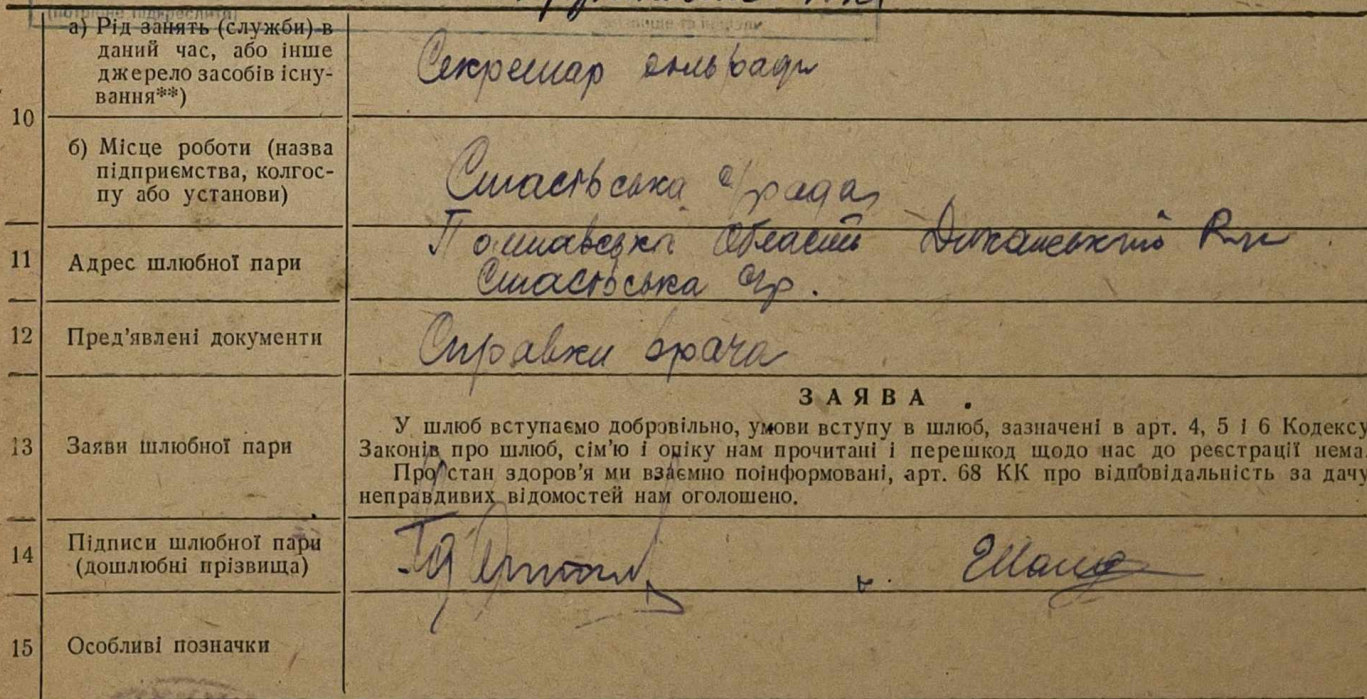 (потрібне підкреслити)
а) Рід занять (служби) в
даний час, або інше
джерело засобів існу-
вання**)
Секретар сільради
10
б) Місце роботи (назва
підприємства, колгос-
пу або установи)
Стасівська с/рада
11
Адрес шлюбної пари
Полтавська область Диканський Р-н
Стасівська с/р.
12
Пред’явлені документи
Справки врача
13
Заяви шлюбної пари
ЗАЯВА
У шлюб вступаємо добровільно, умови вступу в шлюб, зазначені в арт. 4, 5 і 6 Кодексу
Законів про шлюб, сім’ю і опіку нам прочитані і перешкод щодо нас до реєстрації нема.
Про стан здоров’я ми взаємно поінформовані, арт. 68 КК про відповідальність за дачу
неправдивих відомостей нам оголошено.
14
Підписи шлюбної пари
(дошлюбні прізвища)
15
Особливі позначки